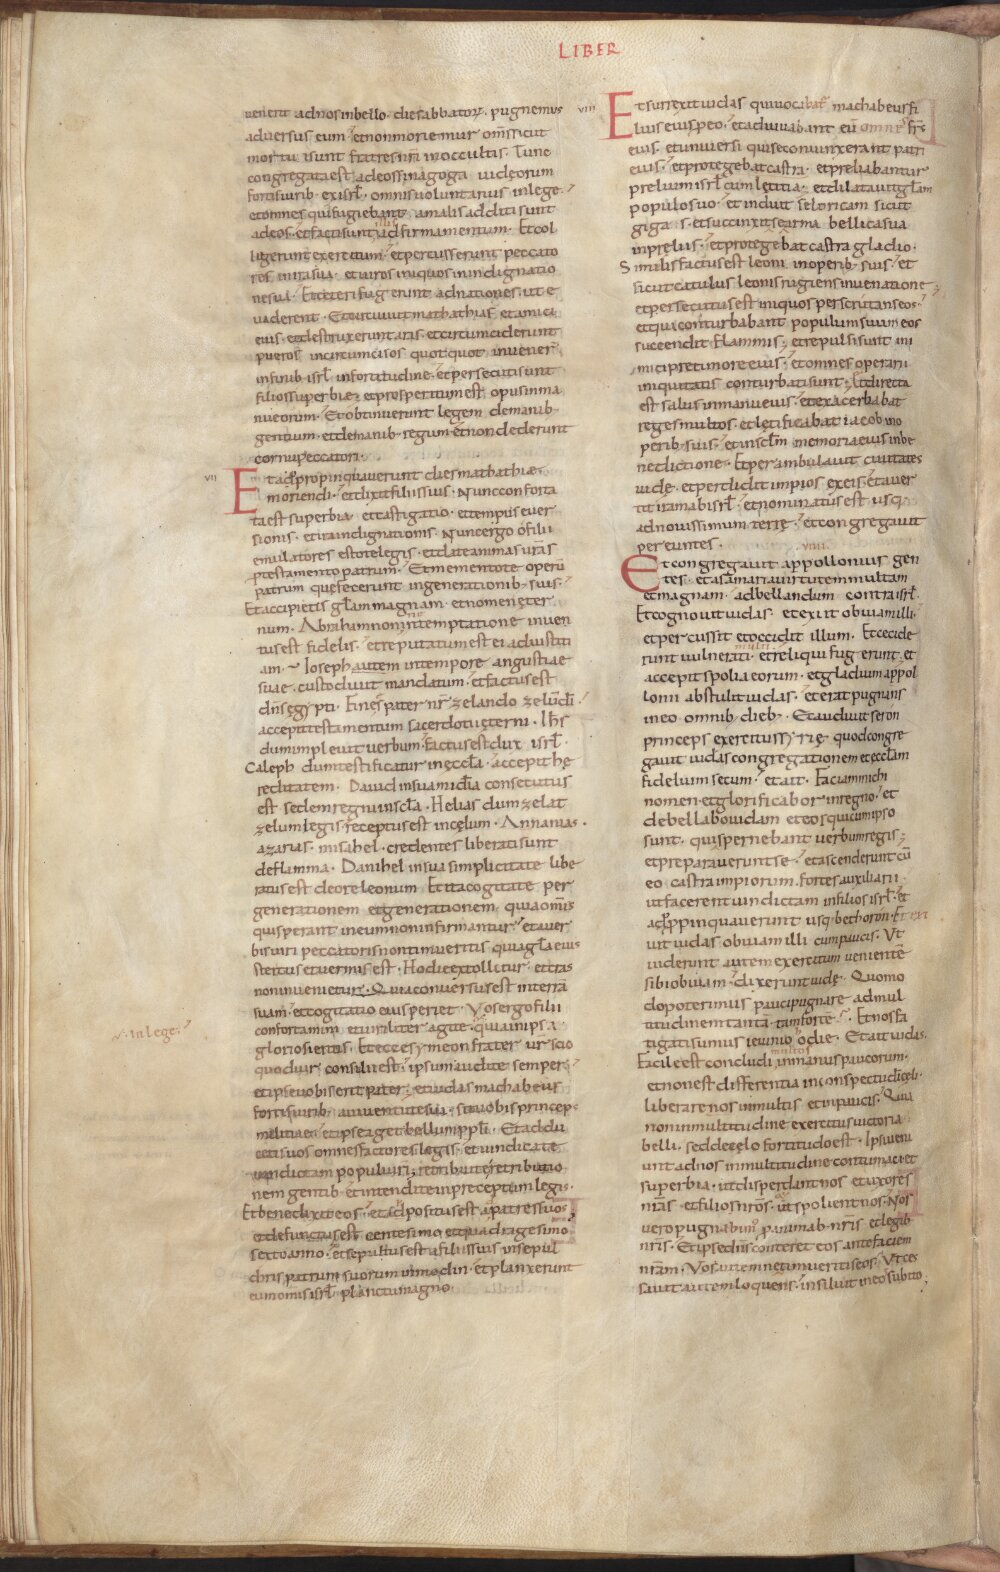 LIBER
uenerit adnos inbello · die sabbatorų · pugnemus
aduersus eum · et non moriemur om̄s sicut
mortui sunt fratres nr̄i inoccultis · Tunc
congregata est adeos sinagoga iudeorum
fortis uirib · ex isrl̄ · omnis uoluntarius inlege ·
et omnes qui fugiebant amalis additi sunt
adeos · et facti sunt ad firmamentum · Et col
ligerunt exercitum · et percusserunt peccato
res inira sua · et uiros iniquos inindignatio
ne sua · Et ceteri fugerunt adnationes · ut e
uaderent · Et circuiuit mathathias et amici
eius · et destruxerunt aras · et circumciderunt
pueros incircumcisos quotquot inuener̄
infinib · isrl̄ infortitudine · et persecuti sunt
filios superbiae · et prosperatum est opus inma
nu eorum · Et obtinuerunt legem demanib ·
gentium · et demanib · regum · et non dederunt
cornu peccatori ·
VII
Et adpropinquauerunt dies mathathiae
moriendi · et dixit filiis suis · Nunc conforta
ta est superbia · et castigatio · et tempus euer
sionis · et ira indignationis · Nunc ergo o filii
emulatores estote legis · et date animas ur̄as
p testamento patrum · Et mementote operū
patrum que fecerunt ingenerationib · suis ·
Et accipietis gl̄am magnam · et nomen eter
num · Abraham nonne intemptatione inuen
tus est fidelis · et reputatum est ei adiustiti
am · Ioseph autem intempore angustiae
suae · custodiuit mandatum · et factus est
dn̄s egypti · Finees pater nr̄ zelando zelum dī
accepit testamentum sacerdotii eterni · Ih̄s
dum impleuit uerbum · factus est dux isrl̄ ·
Caleph dum testificatur in eccl̄a · accepit he
reditatem · Dauid insua mīdia consecutus
est sedem regni inscl̄a · Helias dum zelat
zelum legis · receptus est incelum · Annanias ·
azarias · misahel · credentes liberati sunt
deflamma · Danihel insua simplicitate libe
ratus est deore leonum Et ita cogitate per
generationem et generationem · quia om̄is
qui sperant ineum non infirmantur · et a uer
bis uiri peccatoris non timueritis quia gl̄a eius
stercus et uermis est · Hodie extollitur et cras
non inuenietur · Quia conuersus est interrā
suam · et cogitatio eius periet Vos ergo filii
confortamini et uiriliter agite · quia in ipsa
gloriosi eritis · Et ecce symeon frater ur̄ scio
quod uir consilii est · ipsum audite semper ·
et ipse uobis erit pater · et iudas machabeus
fortis uirib · aiuuentute sua · sit uobis princeps
militiae · et ipse aget bellum ppl̄i · Et addu
cetis uos omnes factores legis · et uindicate
uindictam populi uri · retribuite retributio
nem gentib · et intendite inpreceptum legis ·
Et benedixit eos · et adpositus est apatres suos ·
et defunctus est centesimo et quadragesimo
sexto anno · et sepultus est afiliis suis insepul
chris patrum suorum inmodin · et planxerunt
eum om̄is isrl̄ planctu magno
in lege
VIII
Et surrexit iudas qui uocabat machabeus fi
lius eius peo · et adiuuabant eū omnes fr̄s
eius · et uniuersi qui se coniunxerant patri
eius · et protegebat castra · et preliabantur
prelium isrl̄ cum letitia · et dilatauit gl̄am
populo suo · et induit se loricam sicut
gigas · et succinxit se arma bellica sua
inpreliis · et protegebat castra gladio ·
Similis factus est leoni inoperib · suis · et
sicut catulus leonis rugiens inuenatione
et persecutus est iniquos perscrutans eos ·
et qui conturbabant populum suum eos
succendit flammis · et repulsi sunt ini
mici pretimore eius · et omnes operarii
iniquitatis conturbati sunt · Et directa
est salus inmanu eius · et exacerbabat
reges multos · et letificabat iacob ino
perib · suis · et inscl̄m memoria eius inbe
nedictione · Et perambulauit ciuitates
iude · et perdidit impios exeis · et auer
tit iram abisrl̄ · et nominatus est usq ·
adnouissimum terre · et congregauit
pereuntes ·
VIIII
Et congregauit appollonius gen
tes · et asamaria uirtutem multam
et magnam · adbellandum contra isrl̄ ·
Et cognouit iudas · et exiit obuiam illi ·
et percussit et occidit illum · Et cecide
runt uulnerati multi · et reliqui fugerunt · et
accepit spolia eorum · et gladium appol
lonii abstulit iudas · et erat pugnans
ineo omnib · dieb · Et audiuit seron
princeps exercitus syrie · quod congre
gauit iudas congregationem et eccl̄am
fidelium secum · et ait · Faciam michi
nomen · et glorificabor inregno · et
debellabo iudam et eos qui cum ipso
sunt · qui spernebant uerbum regis ·
et preparauerunt se · et ascenderunt cū
eo castra impiorum · fortes auxiliarii ·
ut facerent uindictam infilios isrl̄ · et
adppinquauerunt usq · bethoron · Et exi
uit iudas obuiam illi cum paucis · Vt
uiderunt autem exercitum uenientē
sibi obuiam · dixerunt iude · Quomo
do poterimus pauci pugnare admul
titudinem tantā · tam forte · Et nos fa
tigati sumus ieiunio odie · Et ait iudas ·
Facile est concludi multos inmanus paucorum ·
et non est differentia inconspectu dī celi ·
liberare nos inmultis et inpaucis · Quia
non inmultitudine exercitus uictoria
belli · sed decelo fortitudo est · Ipsi ueni
unt adnos inmultitudine contumaci et
superbia · ut disperdant nos et uxores
nr̄as · et filios nr̄os · ut spolient nos · Nos
uero pugnabimus panimab · nr̄is et legib ·
nr̄is · Et ipse dn̄s conteret eos ante faciem
nr̄am · Vos autem ne timueritis eos · Vt ces
sauit autem loquens · insiluit ineos subito ·